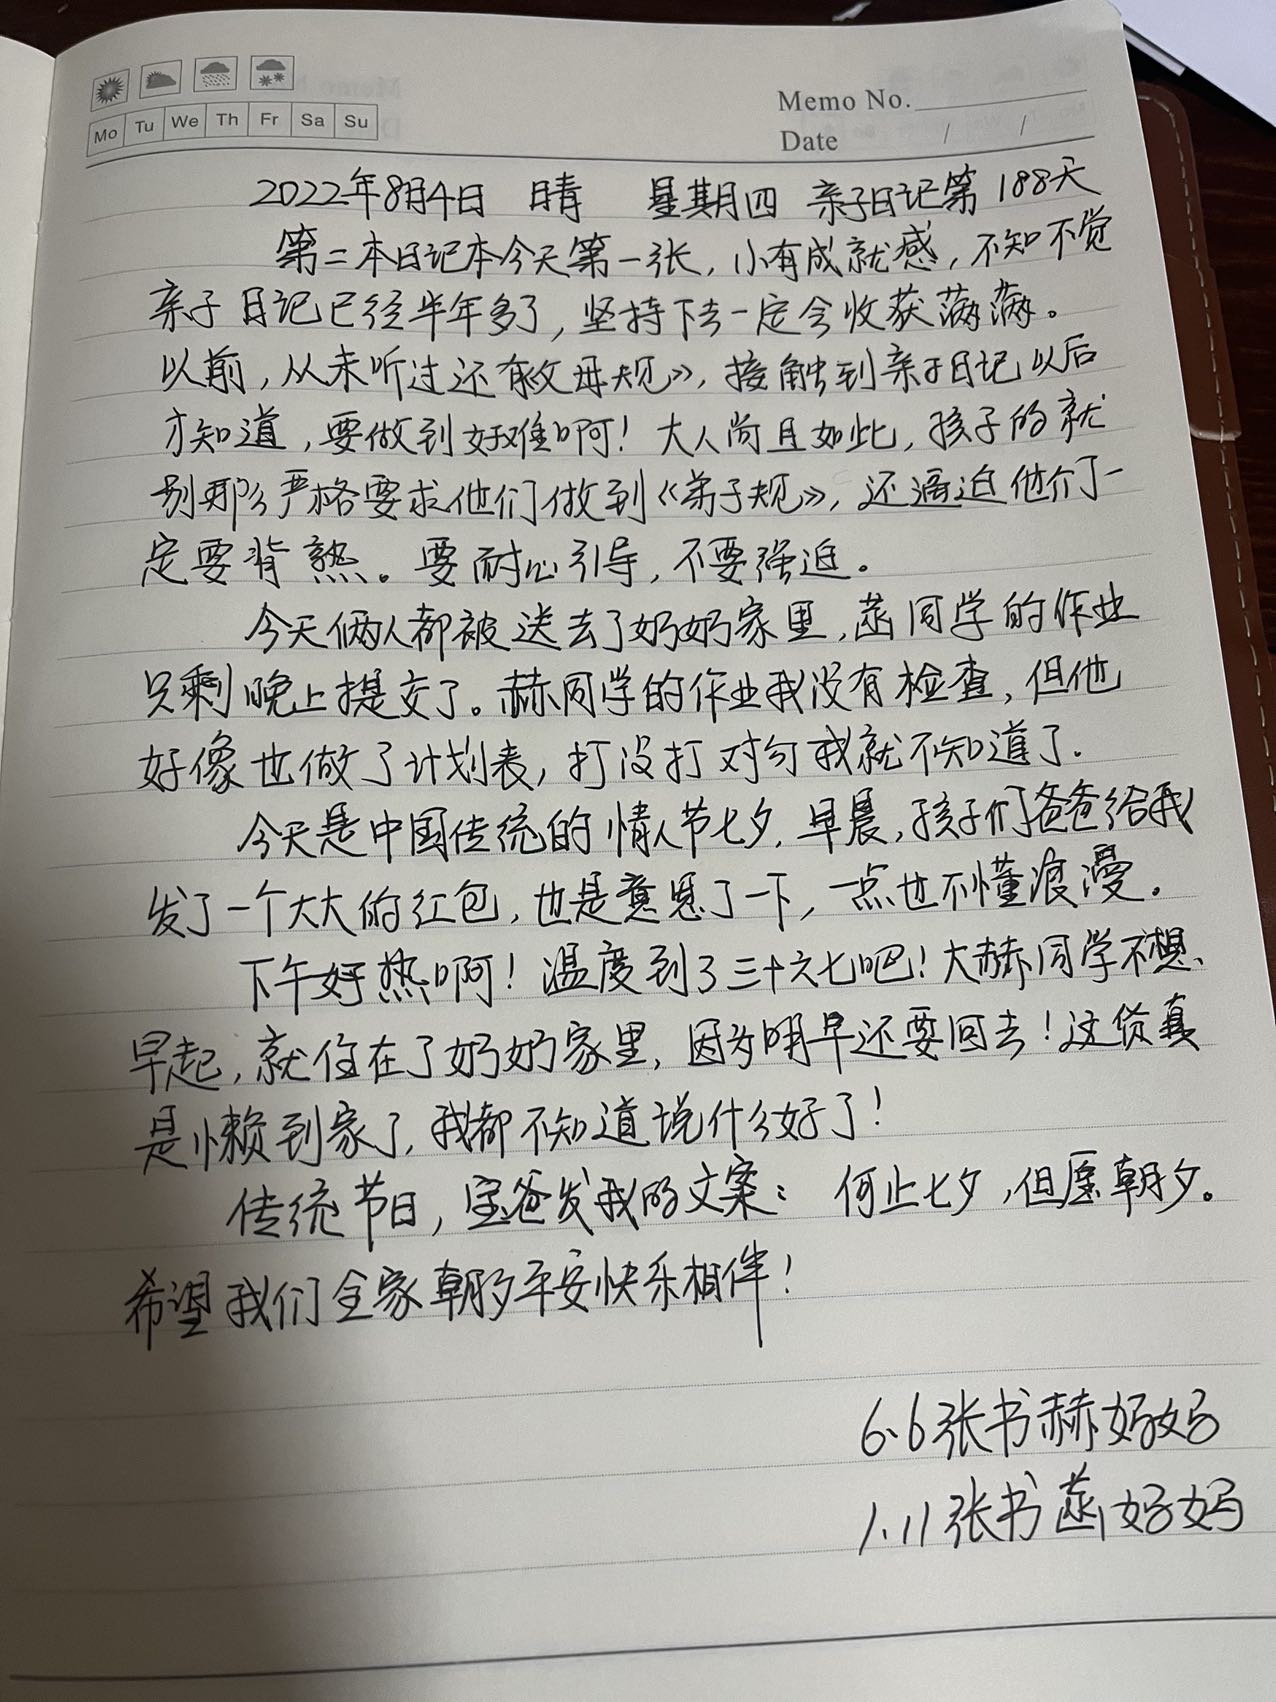 Mo Tu We Th Fr Sa Su
Memo No.
Date / /
2022年8月4日 晴 星期四 亲子日记第188天
第二本日记本今天第一张，小有成就感，不知不觉
亲子日记已经半年多了，坚持下去一定会收获满满。
以前，从未听过还有父母规》，接触到亲子日记以后
才知道，要做到好难啊！大人尚且如此，孩子的就
别那么严格要求他们做到《弟子规》，还逼迫他们一
定要背熟。要耐心引导，不要强迫。
今天俩人都被送去了奶奶家里，菡同学的作业
只剩晚上提交了。赫同学的作业我没有检查，但他
好像也做了计划表，打没打对勾我就不知道了.
今天是中国传统的情人节七夕，早晨，孩子们爸爸给我
发了一个大大的红包，也是意思了一下，一点也不懂浪漫。
下午好热啊！温度到了三十六七吧！大赫同学不想
早起，就住在了奶奶家里，因为明早还要回去！这货真
是懒到家了，我都不知道说什么好了！
传统节日，宝爸发我的文案：何止七夕，但愿朝夕。
希望我们全家朝夕平安快乐相伴！
6.6张书赫妈妈
1.11张书菡妈妈